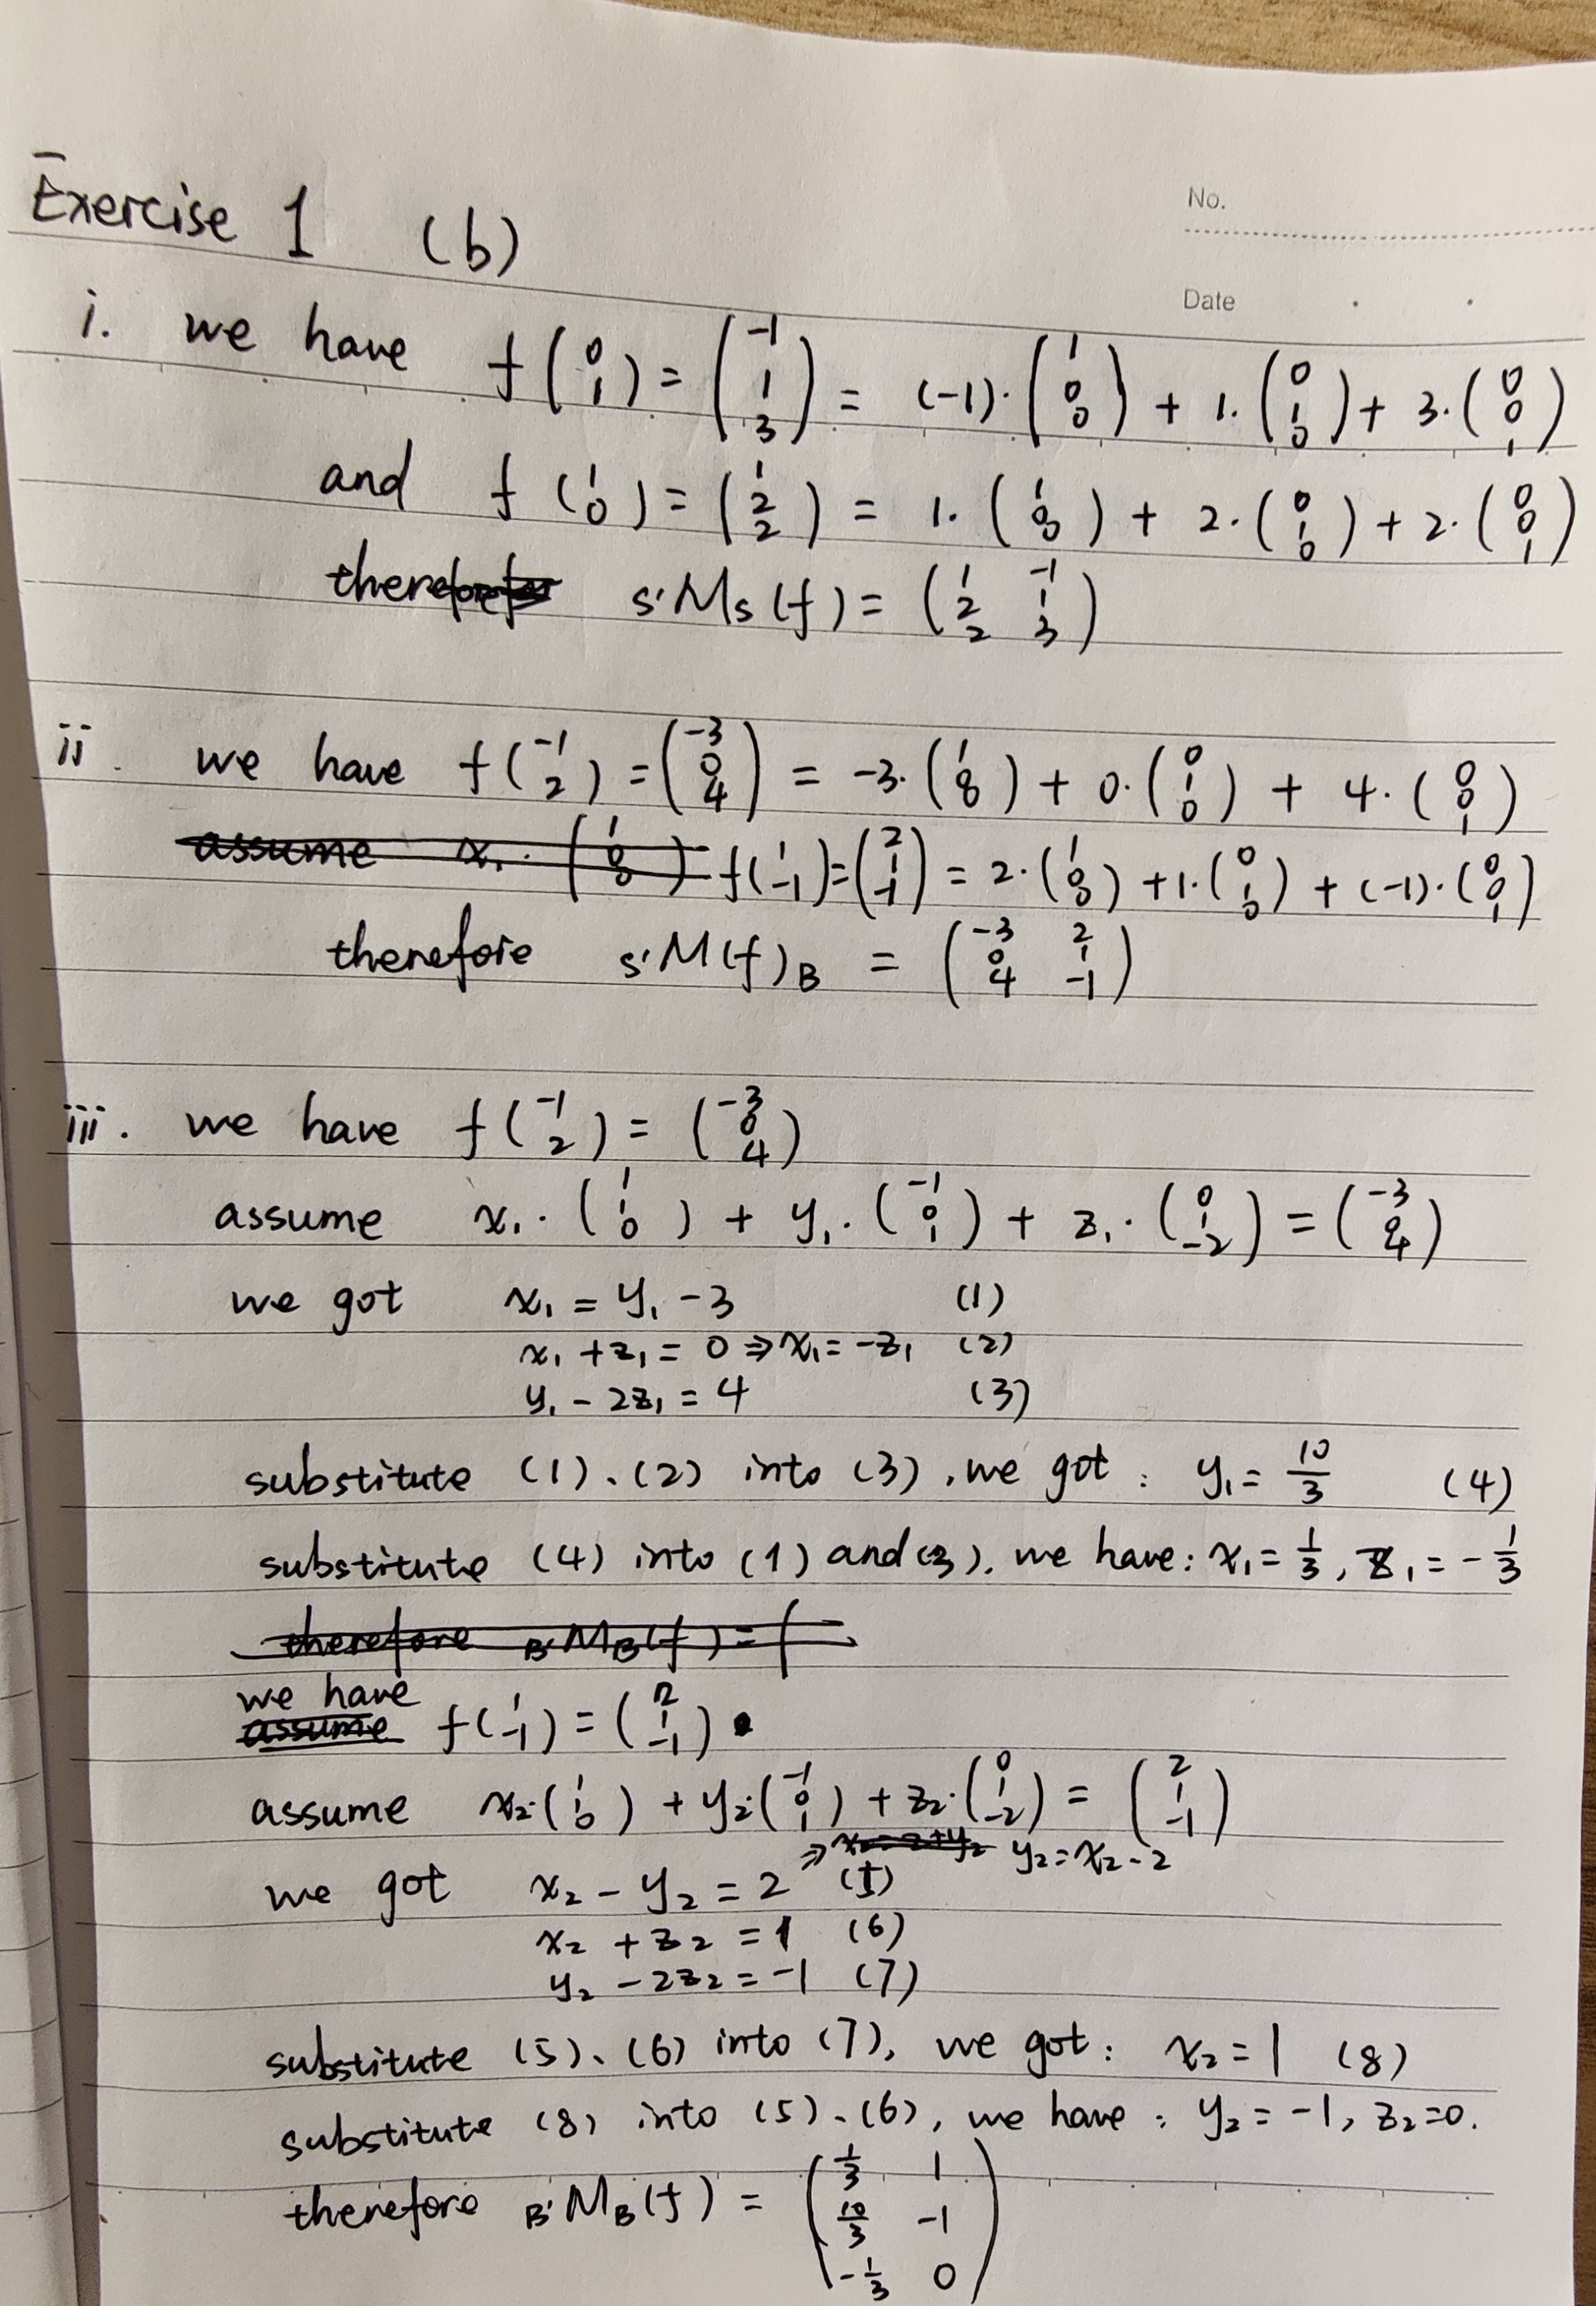 No.
Date
Exercise 1 (b)
i. we have f(0 1) = (-1 1 3) = (-1)·(1 0 0) + 1·(0 1 0) + 3·(0 0 1)
and f(1 0) = (1 2 2) = 1·(1 0 0) + 2·(0 1 0) + 2·(0 0 1)
therefore S'MS(f) = (1 -1 2 1 2 3)
ii. we have f(-1 2) = (-3 0 4) = -3·(1 0 0) + 0·(0 1 0) + 4·(0 0 1)
assume x1·(1 0 0) f(1 -1) = (2 1 -1) = 2·(1 0 0) + 1·(0 1 0) + (-1)·(0 0 1)
therefore S'M(f)B = (-3 2 0 1 4 -1)
iii. we have f(-1 2) = (-3 0 4)
assume x1·(1 1 0) + y1·(-1 0 1) + z1·(0 1 -2) = (-3 0 4)
we got x1 = y1 - 3 (1)
x1 + z1 = 0 ⇒ x1 = -z1 (2)
y1 - 2z1 = 4 (3)
substitute (1)、(2) into (3), we got: y1 = 10/3 (4)
substitute (4) into (1) and (3), we have: x1 = 1/3, z1 = -1/3
therefore B'MB(f) = (
we have
assume f(1 -1) = (2 1 -1)
assume x2·(1 1 0) + y2·(-1 0 1) + z2·(0 1 -2) = (2 1 -1)
we got x2 - y2 = 2 ⇒ x2 = 2 + y2 y2 = x2 - 2 (5)
x2 + z2 = 1 (6)
y2 - 2z2 = -1 (7)
substitute (5)、(6) into (7), we got: x2 = 1 (8)
substitute (8) into (5)、(6), we have: y2 = -1, z2 = 0.
therefore B'MB(f) = (1/3 1 10/3 -1 -1/3 0)